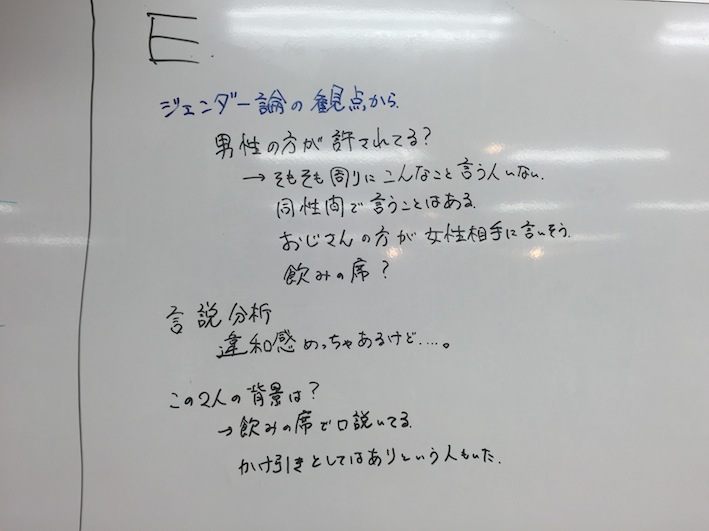 E.
ジェンダー論の観点から.
男性の方が許されてる?
→そもそも周りにこんなこと言う人いない.
同性間で言うことはある.
おじさんの方が女性相手に言いそう.
飲みの席?
言説分析
違和感めっちゃあるけど....。
この2人の背景は?
→飲みの席で口説いてる.
かけ引きとしてはありという人もいた.